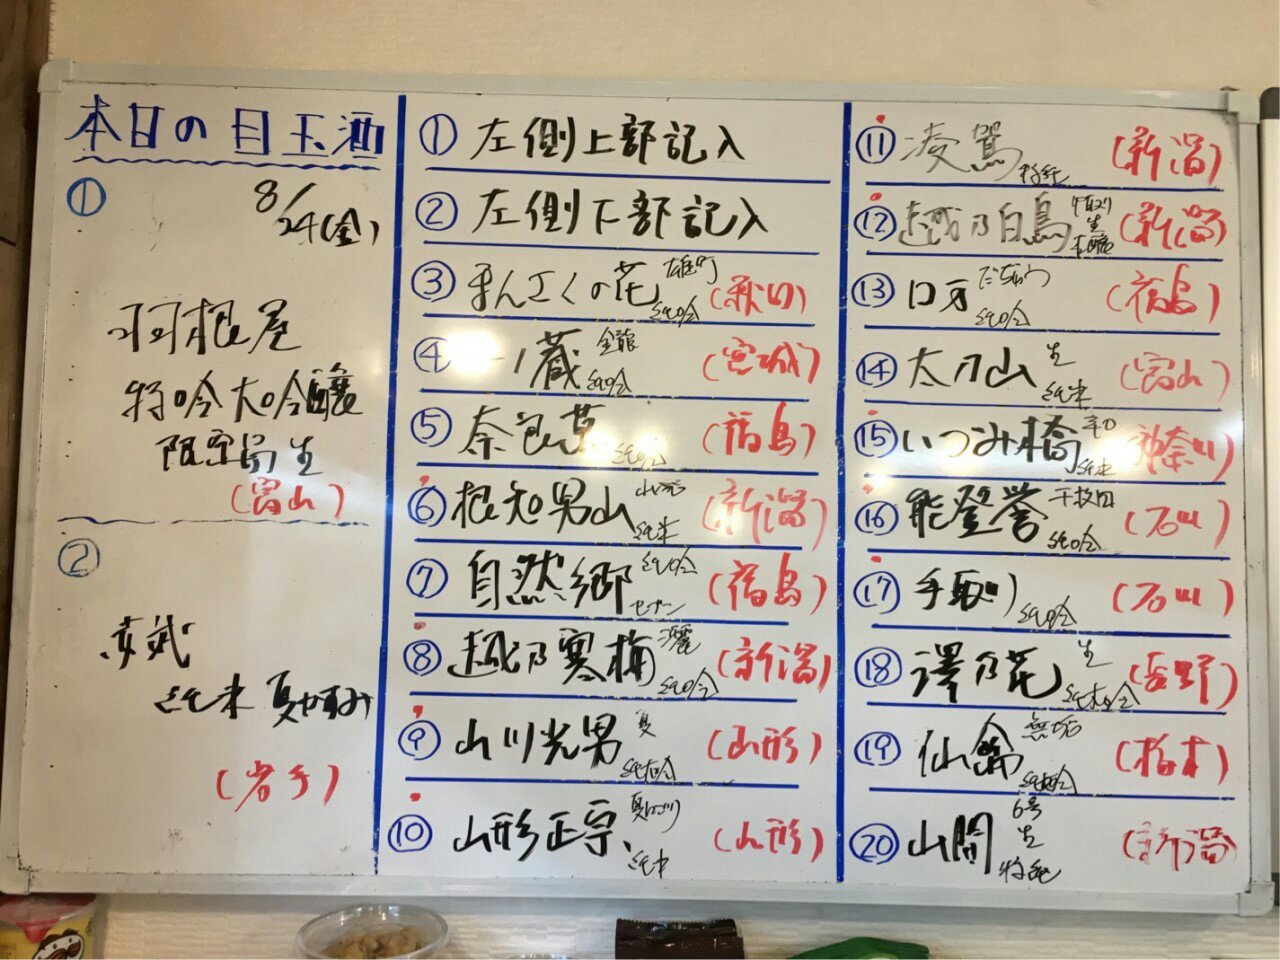 本日の目玉酒
①
8/24(金)
羽根屋
特吟大吟醸
限定 生
(富山)
②
赤武
純米 夏かすみ
(岩手)
① 左側上部記入
② 左側下部記入
③ まんさくの花 雄町 純吟 (秋田)
④ 一ノ蔵 金龍 純吟 (宮城)
⑤ 奈良萬 純吟 (福島)
⑥ 根知男山 純米 (新潟)
⑦ 自然郷 純吟 セブン (福島)
⑧ 越乃寒梅 灑 純吟 (新潟)
⑨ 山川光男 夏 (山形)
⑩ 山形正宗 純米 (山形)
⑪ 凌駕 特純 (新潟)
⑫ 越乃白鳥 生 (新潟)
⑬ 口万 純吟 (福島)
⑭ 太刀山 生 純米 (富山)
⑮ いづみ橋 辛口 純米 (神奈川)
⑯ 能登誉 千枚田 純吟 (石川)
⑰ 手取川 純吟 (石川)
⑱ 澤乃花 生 (長野)
⑲ 仙禽 無垢 (栃木)
⑳ 山間 6号 生 特純 (新潟)